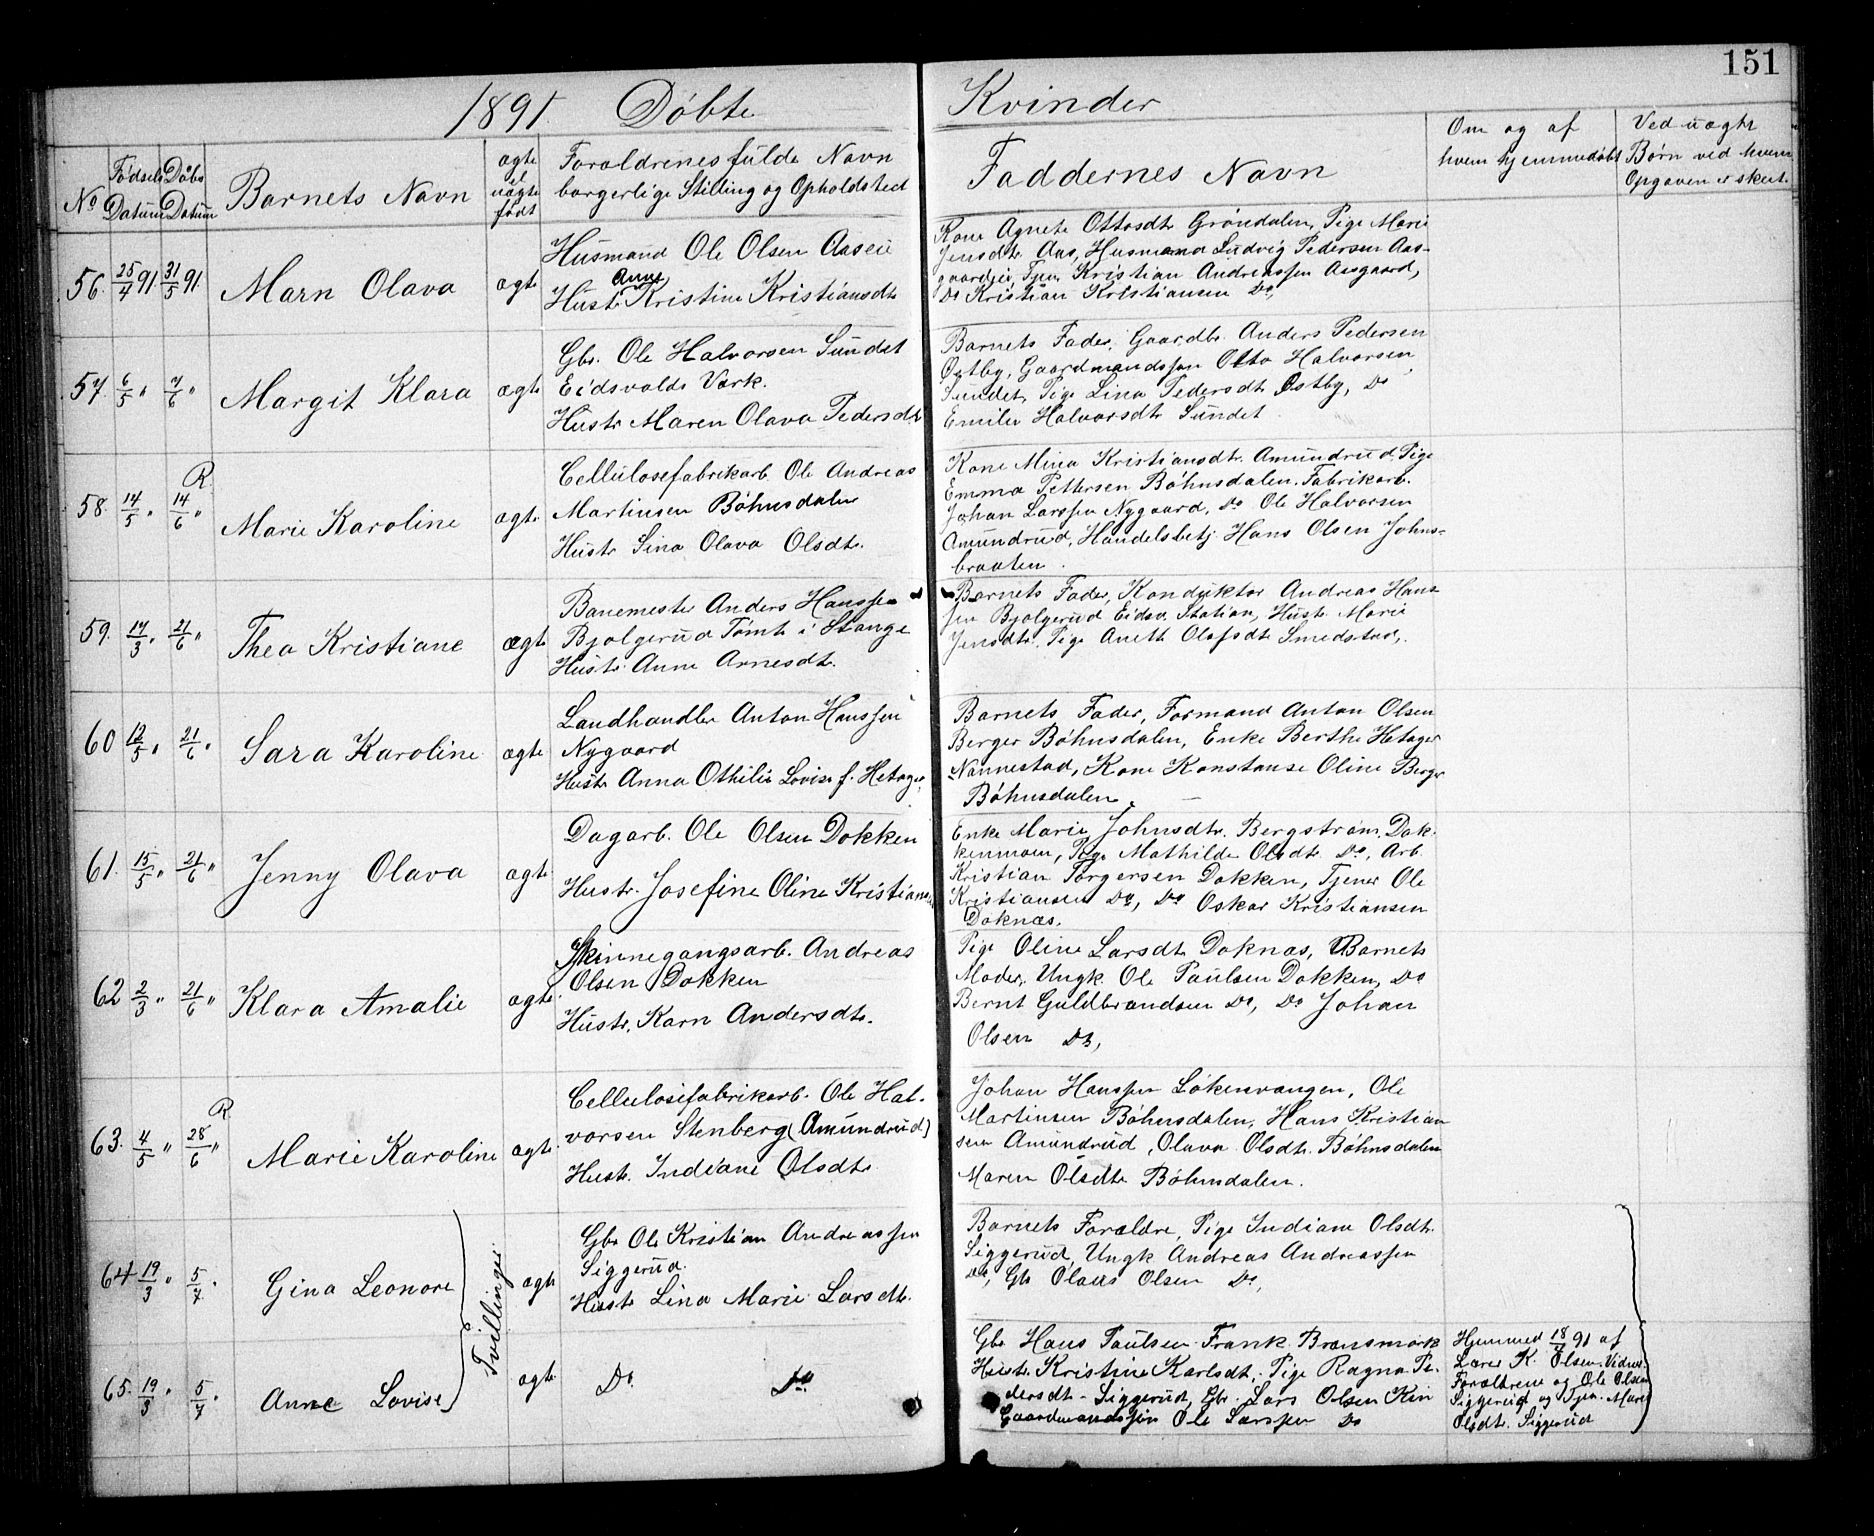 151
1891. Döbte Kvinder
No
Födsels Datum
Döbs Datum
Barnets Navn
ægte el uægte født
Forældrenes fulde Navn
borgerlige Stilling og Opholdsted
Faddernes Navn
Om og af
hvem hjemmedøbt
Ved uægte
Børn ved hvem
Opgaven er skeet.
56. 25/4 91 31/5 91. Marn Olava ægte
Husmand Ole Olsen Aaseie
Anne
Hustr. Kristine Kristiansdtr
Kone Agnete Ottosdtr Gröndalen, Pige Marie
Jensdtr. Aas, Husmand Ludvig Pedersen Aas-
gaardeie, Tjen. Kristian Andreassen Aasgaard,
Do Kristian Kristiansen Do,
57. 6/5 " 7/6 " Margit Klara ægte
Gbr. Ole Halvorsen Sundet
Eidsvolds Værk.
Hustr Maren Olava Pedersdtr
Barnets Fader, Gaardbr Anders Pedersen
Østby, Gaardmandssøn Otto Halvorsen
Sundet, Pige Lina Pedersdtr Østby, Do
Emilie Halvorsdtr Sundet.
R.
58. 14/5 " 14/6 " Marie Karoline ægte
Cellulosefabrikarb. Ole Andreas
Martinsen Böhnsdalen
Hustr Lina Olava Olsdtr.
Kone Mina Kristiansdtr. Amundrud, Pige
Emma Pettersen Böhnsdalen. Fabrikarb.
Johan Larssen Nygaard, Do Ole Halvorsen
Amundrud, Handelsbetj. Hans Olsen Johns-
braaten.
59. 17/3 " 21/6 " Thea Kristiane ægte
Banemester Anders Hanssen
Bjølgerud Tømte i Stange
Hustr. Anne Arnesdtr.
Barnets Fader, Konduktør Andreas Hans-
sen Bjølgerud Eidsv. Station, Hustr Marie
Jensdtr. Pige Anett Olafsdtr Smedstad,
60 12/5 " 21/6 " Sara Karoline ægte
Landhandler Anton Hanssen
Nygaard
Hustr Anna Othilie Lovise f. Hetager
Barnets Fader, Formand Anton Olsen
Berger Böhnsdalen, Enke Berthe Hetager
Nannestad, Kone Konstanse Oline Berger
Böhnsdalen.
61. 15/5 " 21/6 " Jenny Olava ægte
Dagarb. Ole Olsen Dokken
Hustr. Josefine Oline Kristians
Enke Marie Johnsdtr. Bergström, Dok-
kenmoen, Pige Mathilde Olsdtr Do, Arb.
Kristian Torgersen Dokken, Tjener Ole
Kristiansen Do, Do Oskar Kristiansen
Doknæs.
62 2/3 " 21/6 " Klara Amalie ægte.
Skinnegangsarb. Andreas
Olsen Dokken
Hustr. Karn Andersdtr.
Pige Oline Larsdtr Doknæs, Barnets
Moder, Ungk. Ole Paulsen Dokken, Do
Bernt Guldbrandsen Do, Do Johan
Olsen Do,
R
63. 4/5 " 28/6 " Marie Karoline ægte
Cellulosefabrikarb. Ole Hal-
vorsen Stenberg (Amundrud)
Hustr. Indiane Olsdtr
Johan Hanssen Lökenvangen, Ole
Martinsen Böhnsdalen, Hans Kristian
sen Amundrud, Olava Olsdtr. Böhnsdalen
Maren Olsdtr Böhnsdalen.
64 19/3 " 5/7 " Gina Leonore ægte
Tvillinger
Gbr Ole Kristian Andreassen
Siggerud.
Hustr Lina Marie Larsdtr.
Barnets Forældre, Pige Indiane Olsdtr.
Siggerud, Ungk Andreas Andreassen
Do, Gbr Olaus Olsen Do,
65. 19/3 " 5/7 " Anne Lovise ægte
Do Do
Gbr Hans Paulsen Frank Brensmork
Hustr. Kristine Karlsdtr., Pige Ragna Pe-
dersdtr. Siggerud, Gbr. Lars Olsen
Gaardmandssøn Ole Larssen Do
Hjemmed 18/4 91 af
Lærer K. Olsen. Vidner
Forældrene og Ole Olsen
Siggerud og Tjen. Maren
Olsdtr. Siggerud